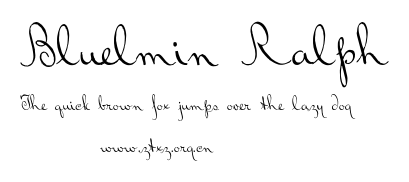 Bluelmin Ralph
The quick brown fox jumps over the lazy dog
www.ztxz.org.cn